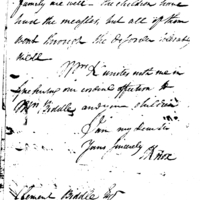 family are well — the children have
had the measles, but all of them
went through the disorder
Mrs K unites with me in
presenting our cordial affection to
Mrs Biddle and your children
I am my dear Sir
Yours Sincerely
H Knox
Clement Biddle Esq